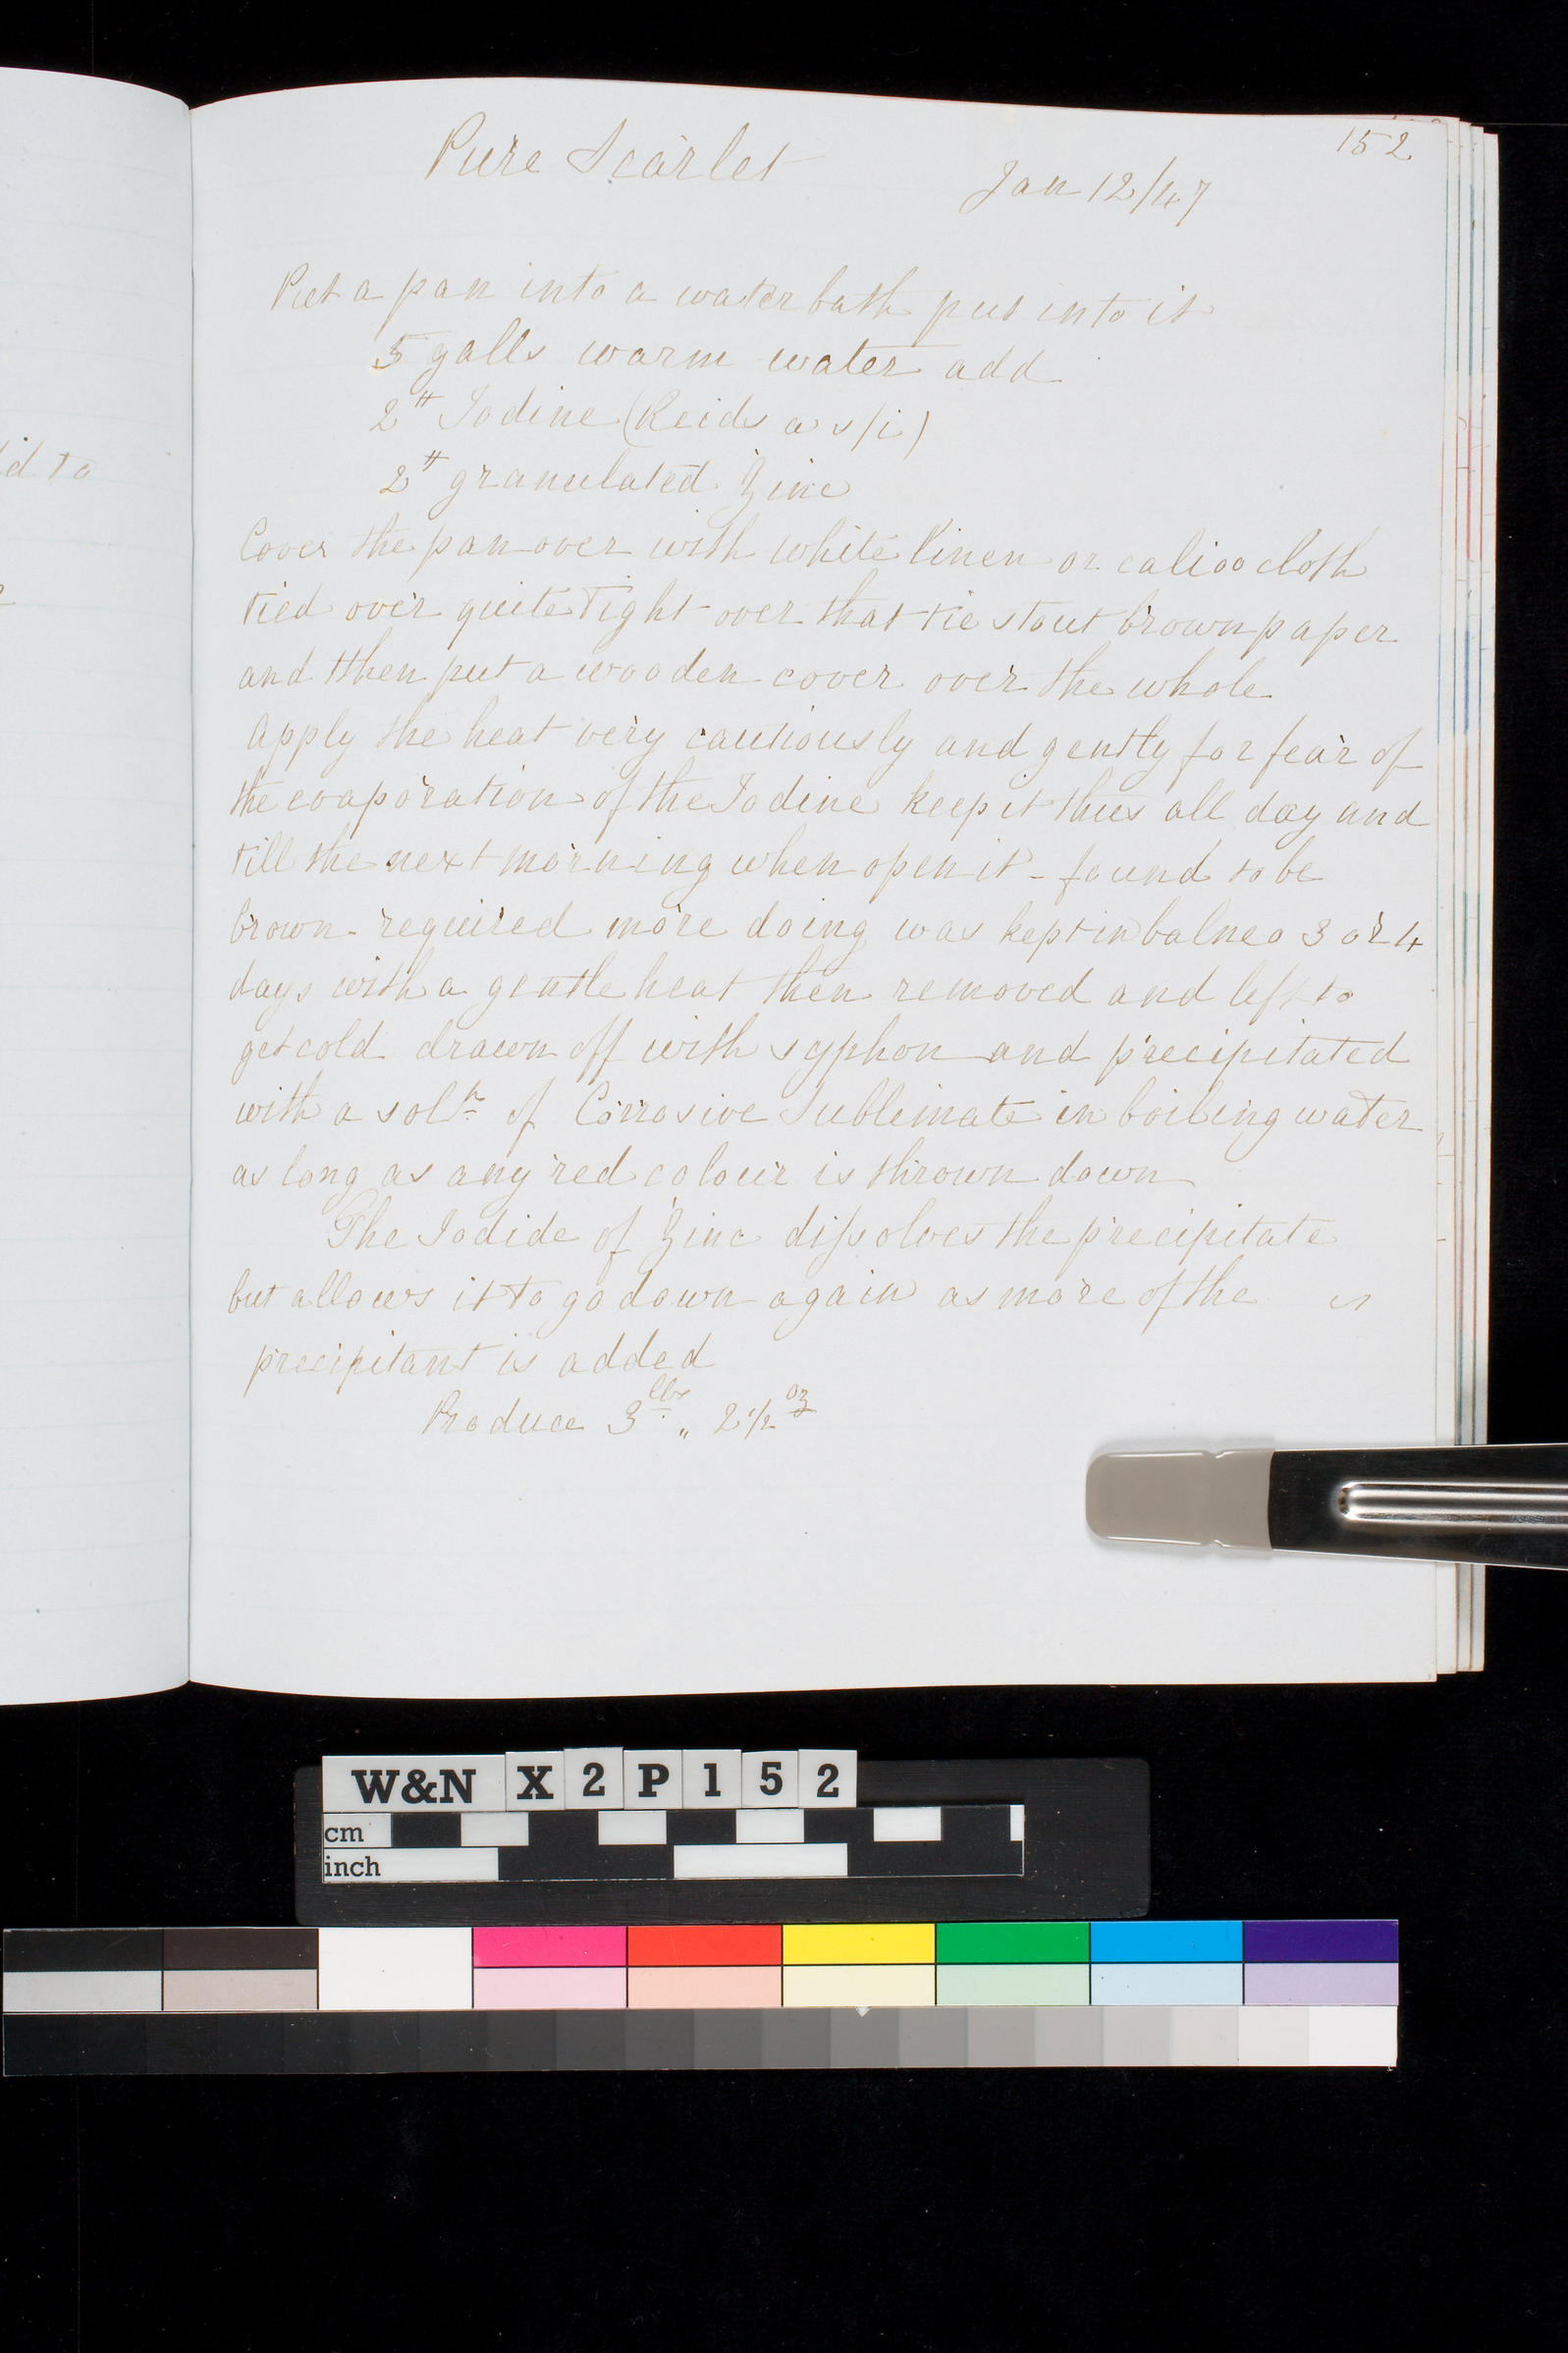 152
Pure Scarlet
Jan 12/47
Put a pan into a water bath put into it
5 galls warm water add
2 # Iodine (Reids a s/i)
2 # granulated Zinc
Cover the pan over with white linen or calico cloth
tied over quite tight over that tie stout brown paper
and then put a wooden cover over the whole
Apply the heat very cautiously and gently for fear of
the evaporation of the Iodine keep it thus all day and
till the next morning when open it - found to be
brown - required more doing was kept in balneo 3 or 4
days with a gentle heat then removed and left to
get cold drawn off with syphon and precipitated
with a soln of Corrosive Sublimate in boiling water
as long as any red colour is thrown down
The Iodide of Zinc dissolves the precipitate
but allows it to go down again as more of the
precipitant is added
Produce 3 lbs „ 2 1/2 oz
id to
W&N X2P152
cm
inch